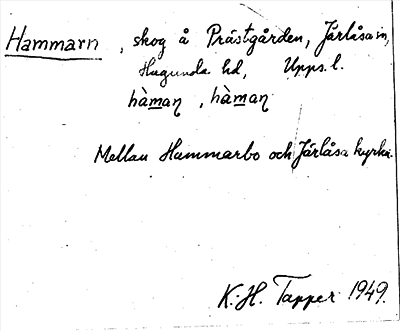 Hammarn, skog å Prästgården, Järlåsa sn,
Hagunda hd, Upps. l.
hàmaɳ, hàmaɳ
Mellan Hammarbo och Järlåsa kyrka.
K.-H. Tapper 1949.